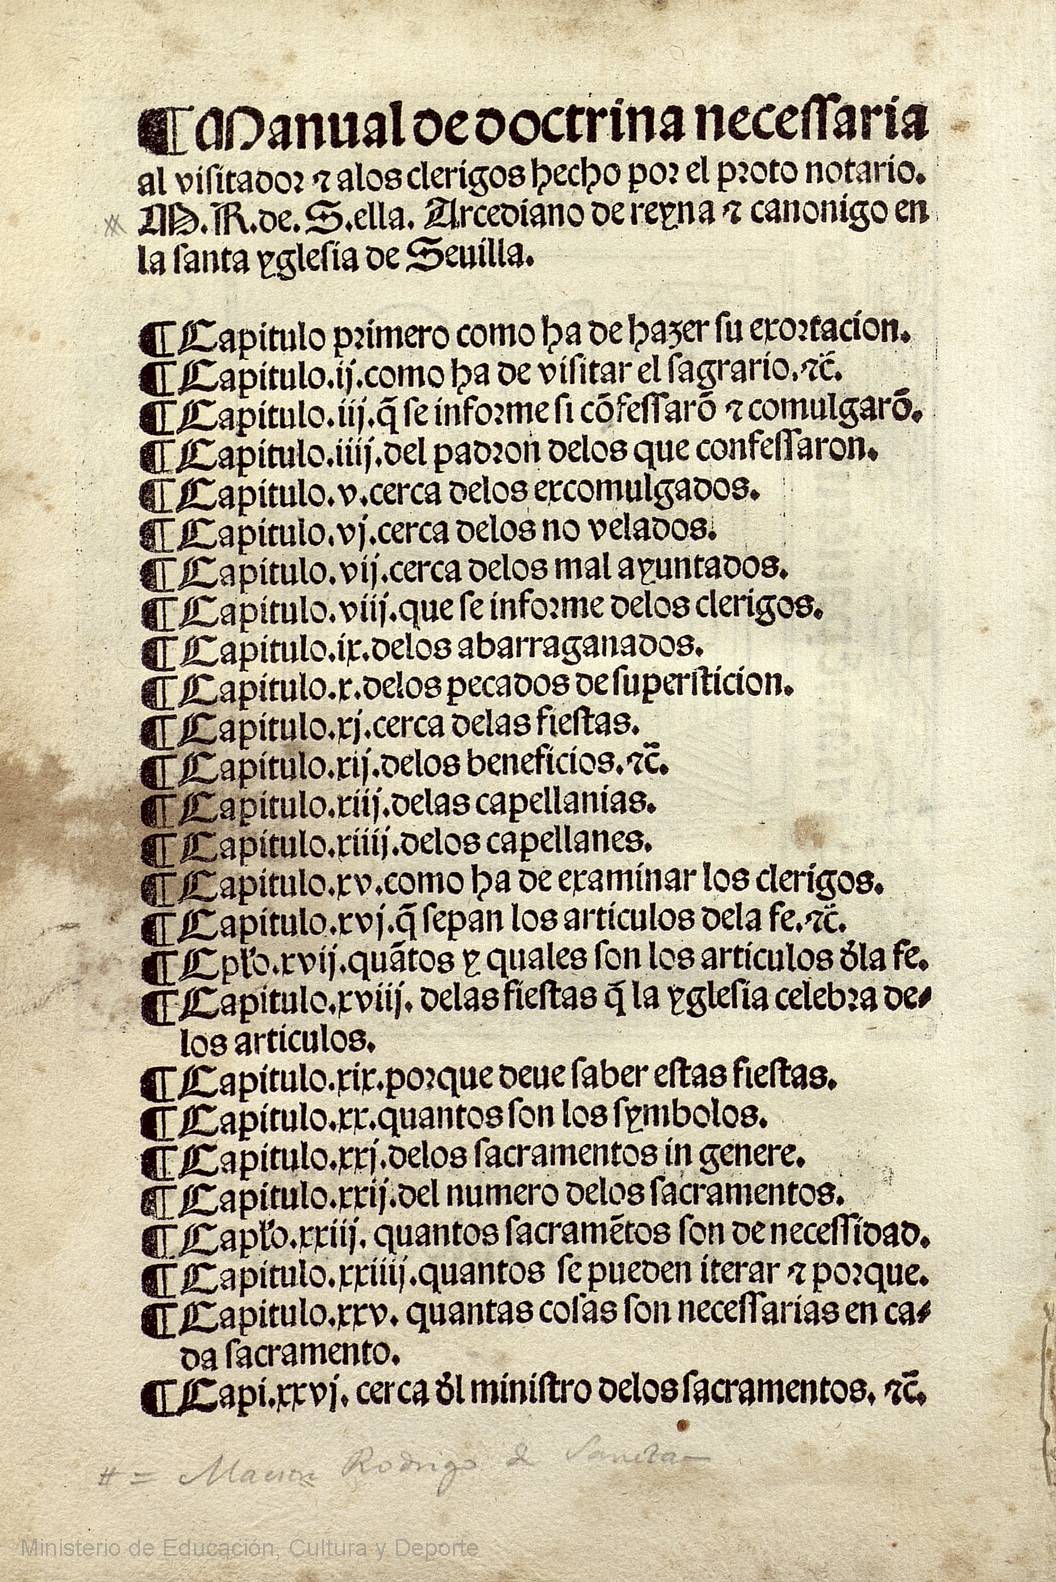 ¶ Manual de doctrina necessaria
al visitador ⁊ alos clerigos hecho por el proto notario.
M. R. de. S. ella. Arcediano de reyna ⁊ canonigo en
la santa yglesia de Seuilla.
¶ Capitulo primero como ha de hazer su exortacion.
¶ Capitulo .ij. como ha de visitar el sagrario. ⁊c̃.
¶ Capitulo .iij. q̃ se informe si cõfessarõ ⁊ comulgarõ.
¶ Capitulo .iiij. del padron delos que confessaron.
¶ Capitulo .v. cerca delos excomulgados.
¶ Capitulo .vj. cerca delos no velados.
¶ Capitulo .vij. cerca delos mal ayuntados.
¶ Capitulo .viij. que se informe delos clerigos.
¶ Capitulo .ix. delos abarraganados.
¶ Capitulo .x. delos pecados de supersticion.
¶ Capitulo .xj. cerca delas fiestas.
¶ Capitulo .xij. delos beneficios. ⁊c̃.
¶ Capitulo .xiij. delas capellanias.
¶ Capitulo .xiiij. delos capellanes.
¶ Capitulo .xv. como ha de examinar los clerigos.
¶ Capitulo .xvj. q̃ sepan los articulos dela fe. ⁊c̃.
¶ Cpło .xvij. quãtos y quales son los articulos d̃la fe.
¶ Capitulo .xviij. delas fiestas q̃ la yglesia celebra de⸗
los articulos.
¶ Capitulo .xix. porque deue saber estas fiestas.
¶ Capitulo .xx. quantos son los symbolos.
¶ Capitulo .xxj. delos sacramentos in genere.
¶ Capitulo .xxij. del numero delos sacramentos.
¶ Capło .xxiij. quantos sacramẽtos son de necessidad.
¶ Capitulo .xxiiij. quantos se pueden iterar ⁊ porque.
¶ Capitulo .xxv. quantas cosas son necessarias en ca⸗
da sacramento.
¶ Capi .xxvj. cerca d̃l ministro delos sacramentos. ⁊c̃.
# = Rodrigo de
Ministerio de Educación, Cultura y Deporte